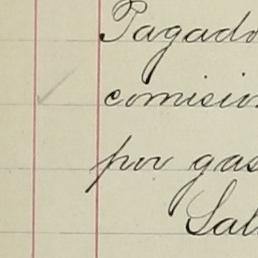 Pagado
comision
por gas
Sal